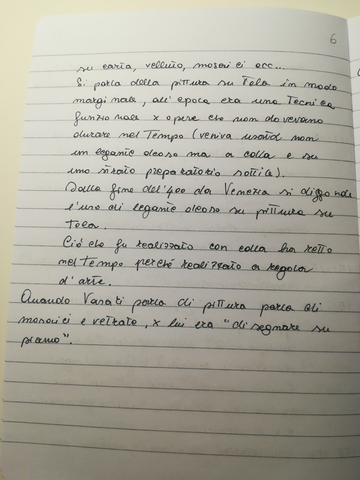 6
su carta, velluto, mosaici ecc...
Si parla della pittura su Tela in modo
marginale, all'epoca era una Tecnica
funzionale x opere che non dovevano
durare nel Tempo (veniva usato non
un legante oleoso ma a colla e su
uno strato preparatorio sottile).
Dalla fine del '400 da Venezia si diffonde
l'uso di legante oleoso su pittura su
Tela.
Ciò che fu realizzato con colla ha retto
nel Tempo perché realizzato a regola
d'arte.
Quando Vasari parla di pittura parla di
mosaici e vetrate, x lui era "disegnare su
piano".